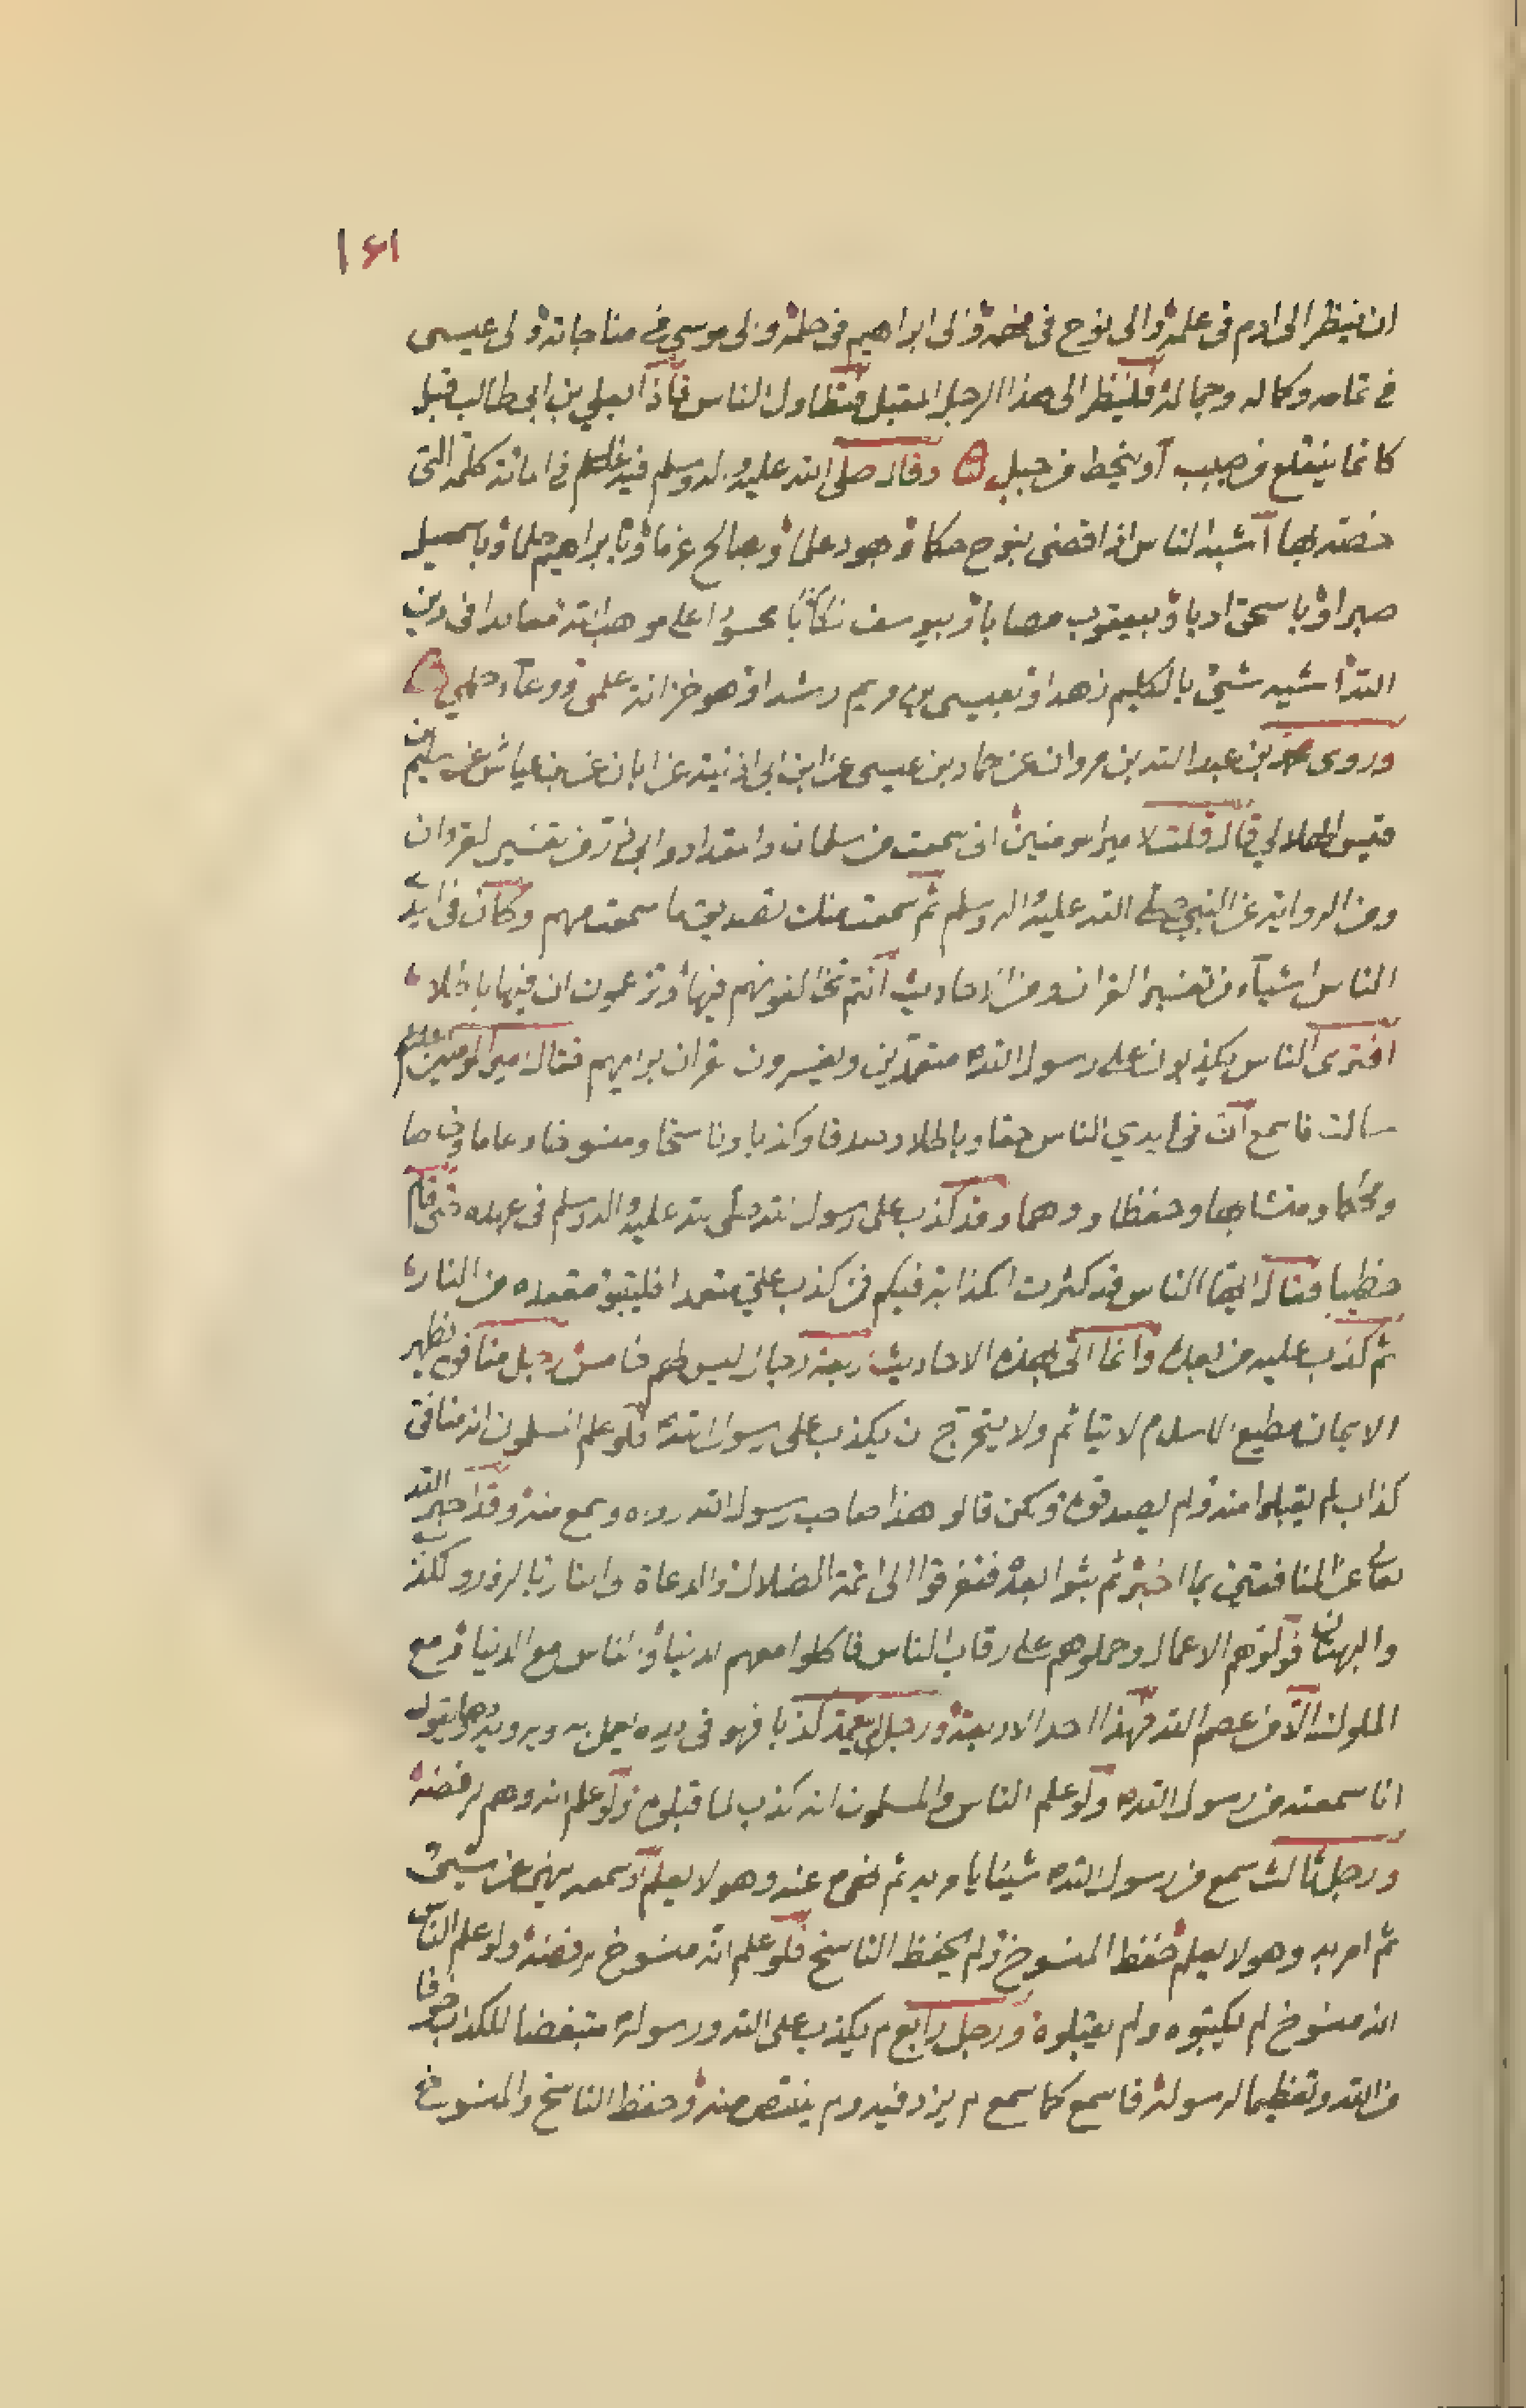 ١٦١
ان ينظر الى ادم فى علمه والى نوح فى فهمه والى ابراهيم فى حلمه والى موسى فى مناجاته والى عيسى
فى تمامه وكماله وجماله فلينظر الى هذا الرجل المقبل فتطاول الناس فاذا بعلي بن ابى طالب مقبل
كانما ينقلع من صبب او ينحط من جبل وقال صلى الله عليه واله وسلم فيه فى امانة كلمه التى
خصته بها اشبه الناس اذا قضى بنوح حكما وبهود علما وبصالح عزما وبابراهيم حلما وباسمعيل
صبرا وباسحق ادبا وبيعقوب مصابا وبيوسف محسودا على مواهب الله معاندا فى دين
الله اشبه شيئ بالكليم زهدا وبعيسى بن مريم رشدا وهو خزانة علمى ووعاء حلمي
وروى محمد بن عبد الله بن مروان عن حماد بن عيسى عن ابن ابى اذينة عن ابان عن بن عياش عن سليم بن
قيس الهلالي قال قلت لامير المومنين انى سمعت من سلمان والمقداد وابى ذر من تفسير القران
ومن الرواية عن النبي صلى الله عليه واله وسلم ثم سمعت منك تصديق ما سمعت منهم وكان فى ايدي
الناس اشياء من تفسير القران ومن الاحاديث انتم تخالفونهم فيها وتزعمون ان فيها باطلا
افترى الناس يكذبون على رسول الله متعمدين ويفسرون القران برايهم فقال امير المومنين عليه السلم
سالت فاسمع ان فى ايدي الناس حقا وباطلا وصدقا وكذبا وناسخا ومنسوخا وعاما وخاصا
ومحكما ومتشابها وحفظا ووهما وقد كذب على رسول الله صلى الله عليه واله وسلم فى عهده حتى قام
خطيبا فقال ايها الناس قد كثرت الكذابة فيكم فمن كذب علي متعمدا فليتبوء مقعده من النار
ثم كذب عليه من بعده وانما اتى بهذه الاحاديث اربعة رجال ليس لهم خامس رجل منافق يظهر
الايمان مطيع للاسلام لا يتاثم ولا يتحرج ان يكذب على رسول الله فلو علم المسلمون انه منافق
كذاب لم يقبلوا منه ولم يصدقوه ولكن قالو هذا صاحب رسول الله راه وسمع منه وقد اخبر الله
تعالى عن المنافقين بما اخبر ثم بقوا بعده فتفرقوا الى ائمة الضلال والدعاة الى النار بالزور والكذب
والبهتان فولوهم الاعمال وحملوهم على رقاب الناس فاكلوا معهم الدنيا والناس مع الدنيا ومع
الملوك الا من عصم الله فهذا احد الاربعة ورجل لم يتعمد كذبا فهو فى يده يعمل به ويرويه ويقول
انا سمعته من رسول الله ولو علم الناس والمسلمون انه كذب لما قبلوه ولو علم انه وهم لرفضه
ورجل ثالث سمع من رسول الله شيئا يامر به ثم نهى عنه وهو لا يعلم او سمعه ينهى عن شيئ
ثم امر به وهو لا يعلم حفظ المنسوخ ولم يحفظ الناسخ فلو علم انه منسوخ لرفضه ولو علم الناس
انه منسوخ لم يكتبوه ولم يقبلوه ورجل رابع لم يكذب على الله ورسوله متبغضا للكذب خوفا
من الله وتعظيما لرسوله فاسمع كما سمع لم يزد فيه ولم ينتقص منه وحفظ الناسخ والمنسوخ